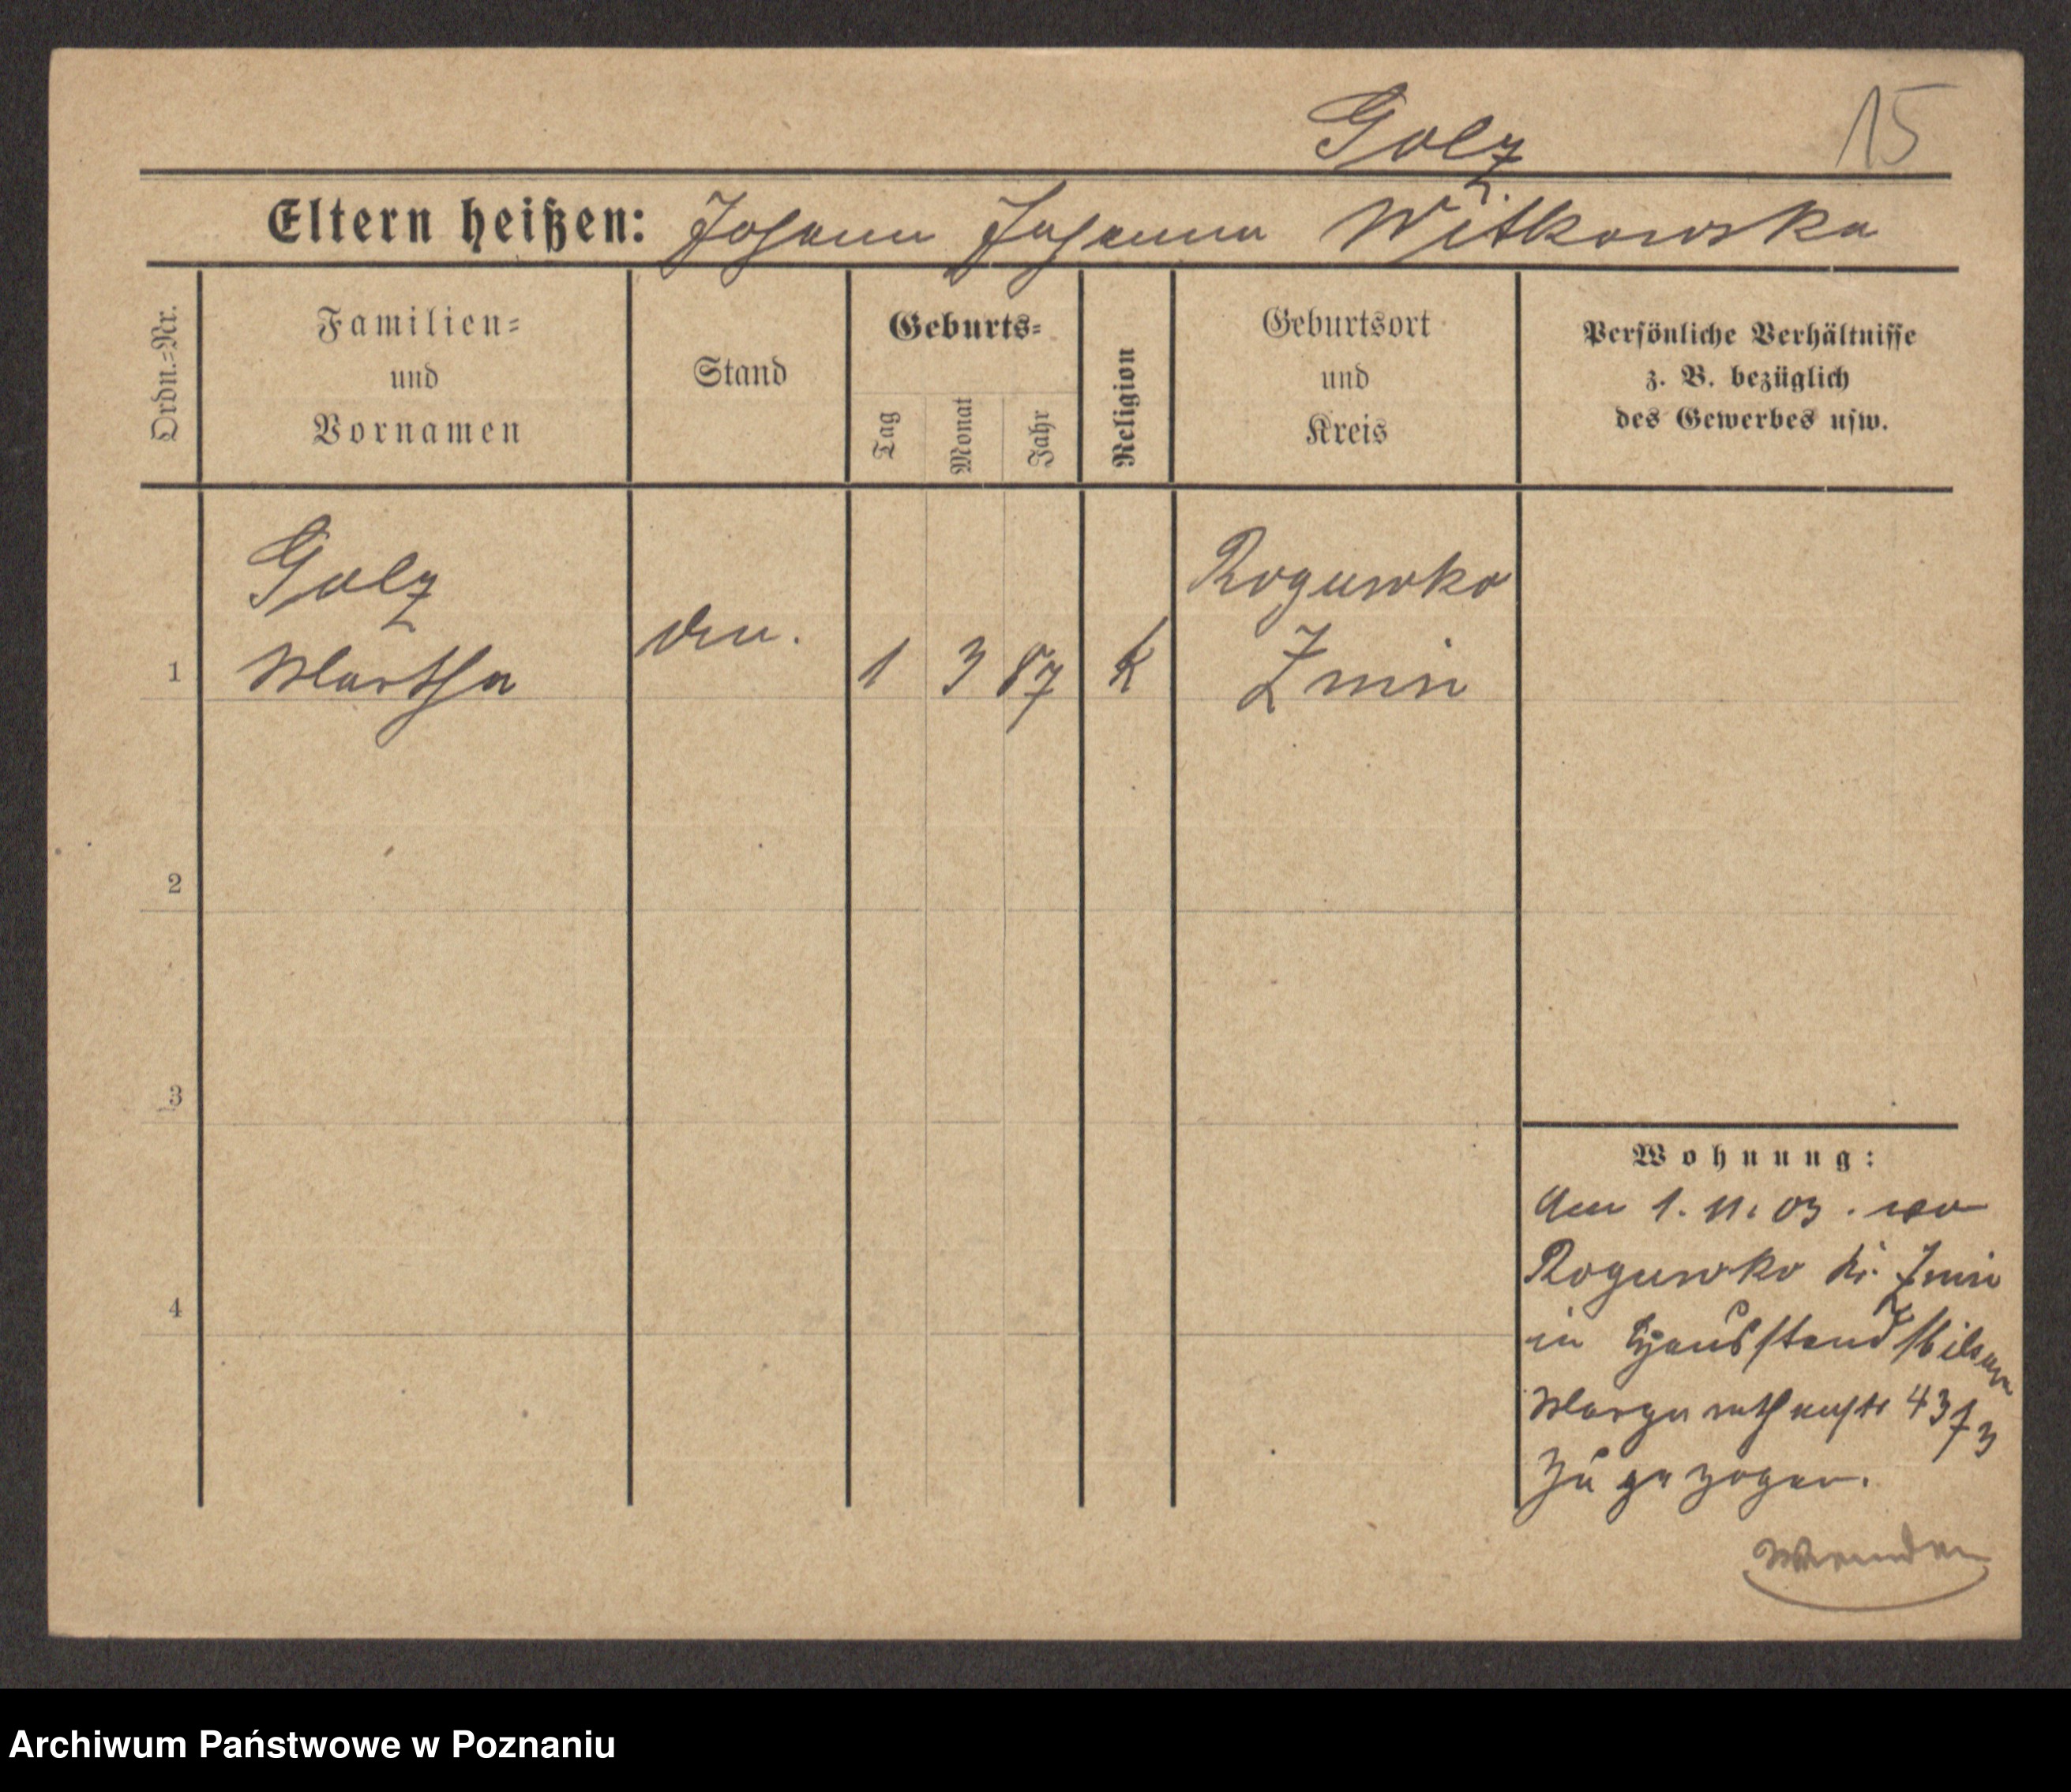 Golz
15
Eltern heißen: Johann Johanna Witkowska
Ordn.=Nr.
Familien=
und
Vornamen
Stand
Geburts=
Tag
Monat
Jahr
Religion
Geburtsort
und
Kreis
Persönliche Verhältnisse
z. B. bezüglich
des Gewerbes usw.
Golz
Martha
1
1 3 87
K
Rogowko
Znin
2
3
4
Wohnung:
Am 1. 11. 03. von
Rogowko Kr. Znin
in Hausstand
Margarethenstr 43
zugezogen.
Wenden
Archiwum Państwowe w Poznaniu